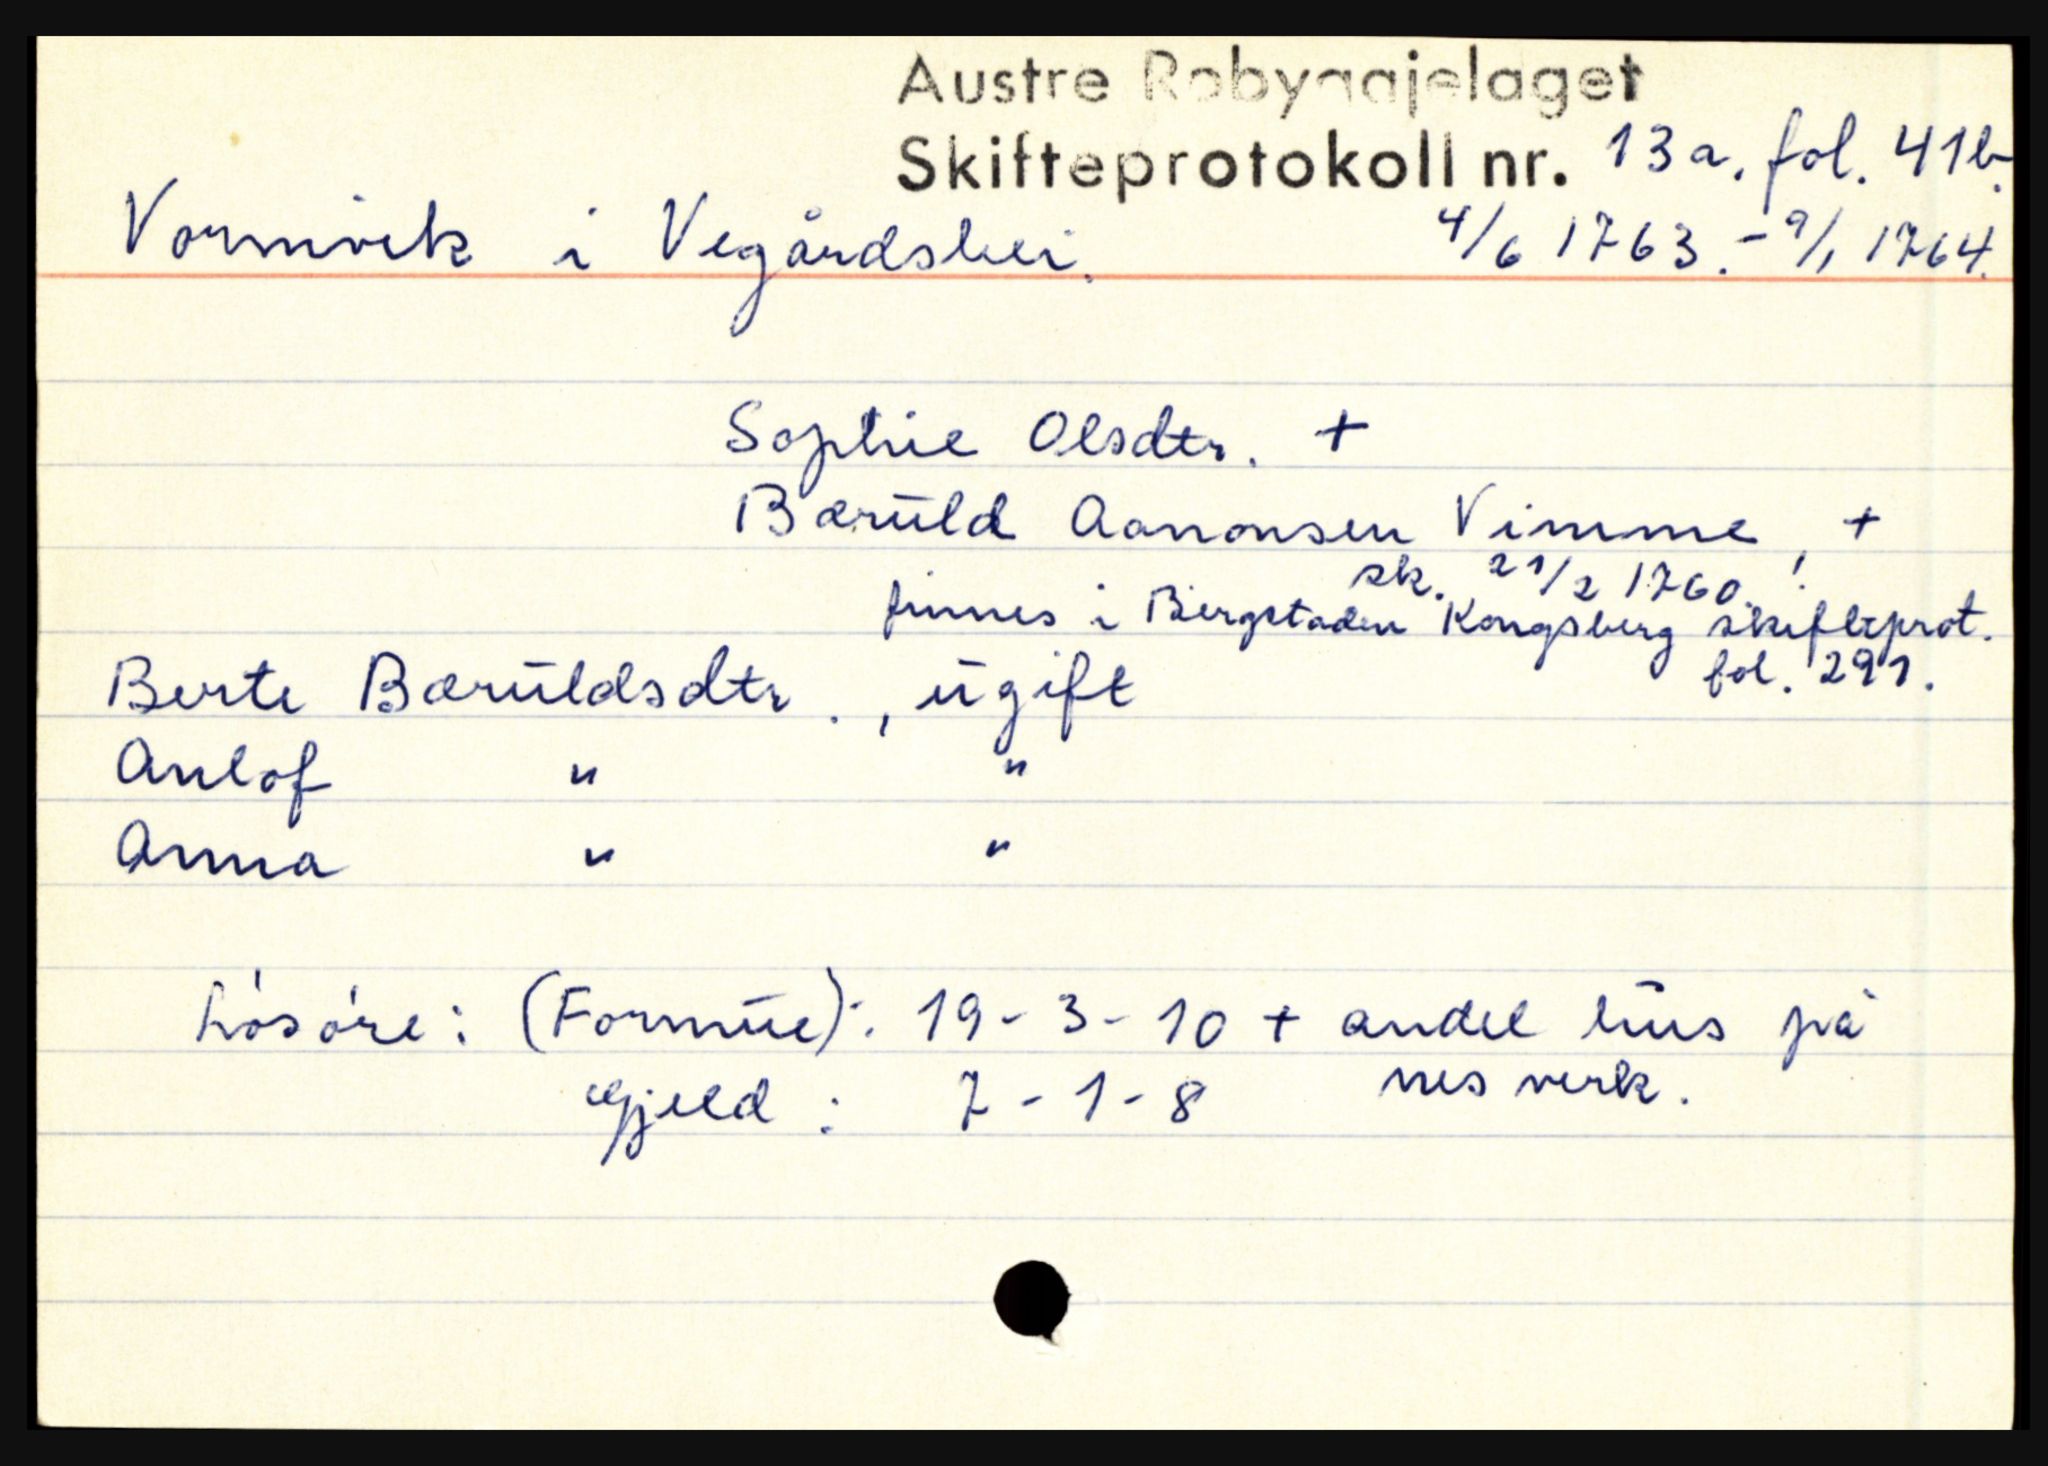 Austre Robyggjelaget
Skifteprotokoll nr. 13a. fol. 41b.
Vormvik i Vegårdshei. 4/6 1763. - 9/1 1764.
Sophie Olsdtr. +
Bæruld Aanonsen Vimme, +
sk. 21/2 1760.!
finnes i Bergstaden Kongsberg skifteprot.
fol. 291.
Berte Bæruldsdtr., ugift
Anlof " "
Anna " "
Lósóre: (Formue): 19-3-10 + andel hus på
Gjeld: 7-1-8 nes verk.